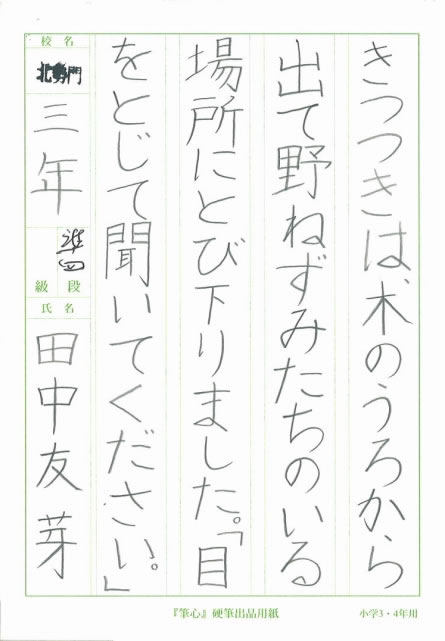 きつつきは、木のうろから
出て野ねずみたちのいる
場所にとび下りました。「目
をとじて聞いてください。」
校名
三年
準四
級段
氏名
田中友芽
『筆心』硬筆出品用紙
小学3・4年用